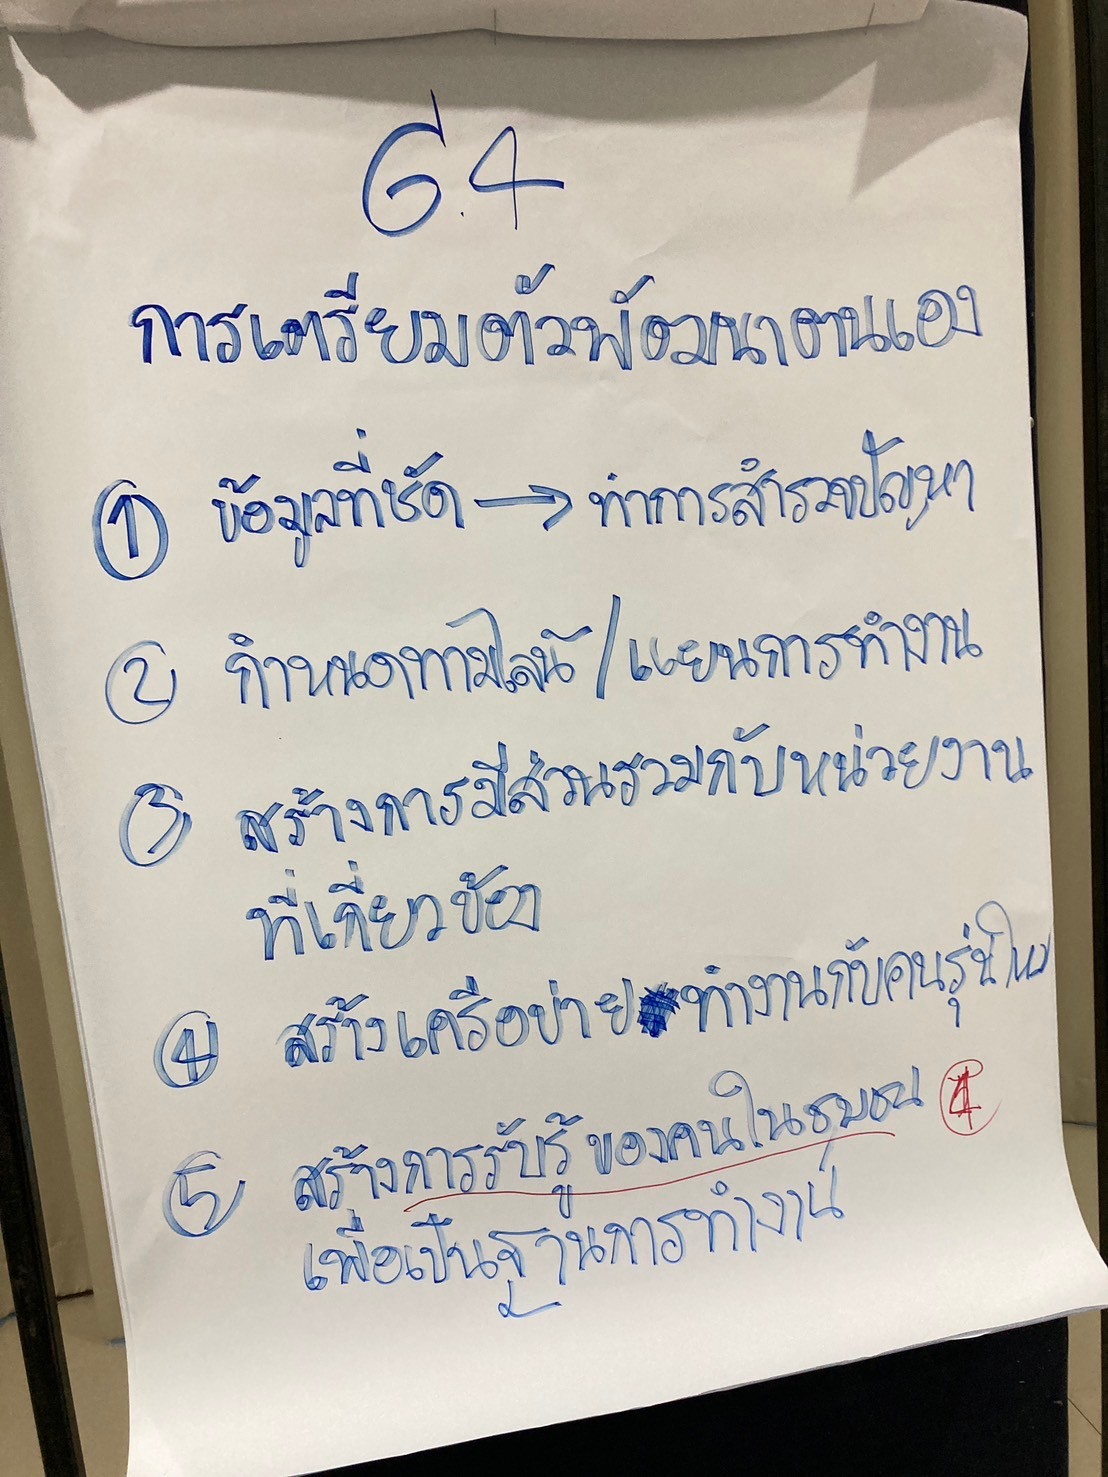 G.4
การเตรียมตัวพัฒนาตนเอง
① ข้อมูลที่ชัด → ทำการสำรวจปัญหา
② กำหนดทามไลน์ / แผนการทำงาน
③ สร้างการมีส่วนรวมกับหน่วยงาน
ที่เกี่ยวข้อง
④ สร้างเครือข่าย ทำงานกับคนรุ่นใหม่
⑤ สร้างการรับรู้ของคนในชุมชน ④
เพื่อเป็นฐานการทำงาน